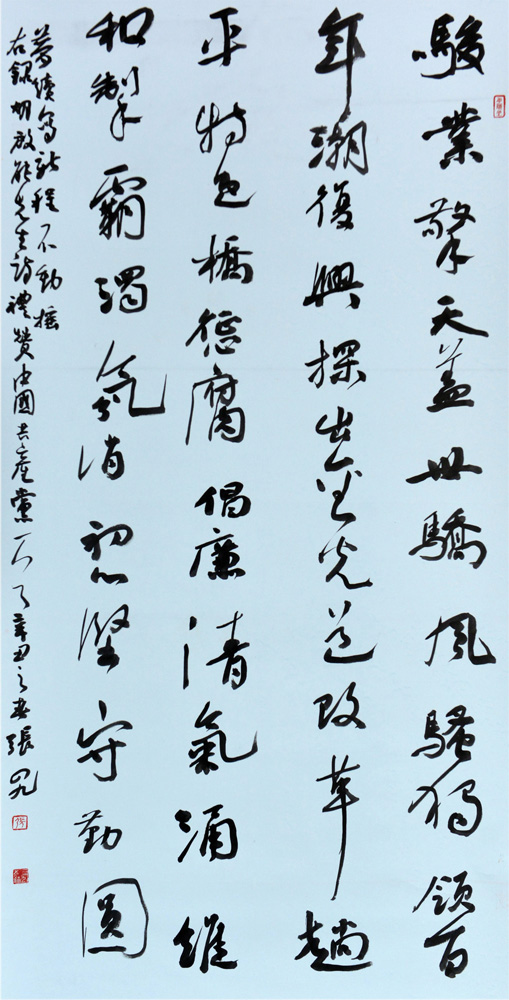 駿業擎天蓋世驕風騷獨領百
年潮復興探出金光道改革趟
平特色橋惩腐倡廉清氣涌維
和掣霸濁氛消初心堅守勤圓
夢續寫新程不動搖
右錄胡啟能先生詩禮贊中國共產黨一首辛丑之春張